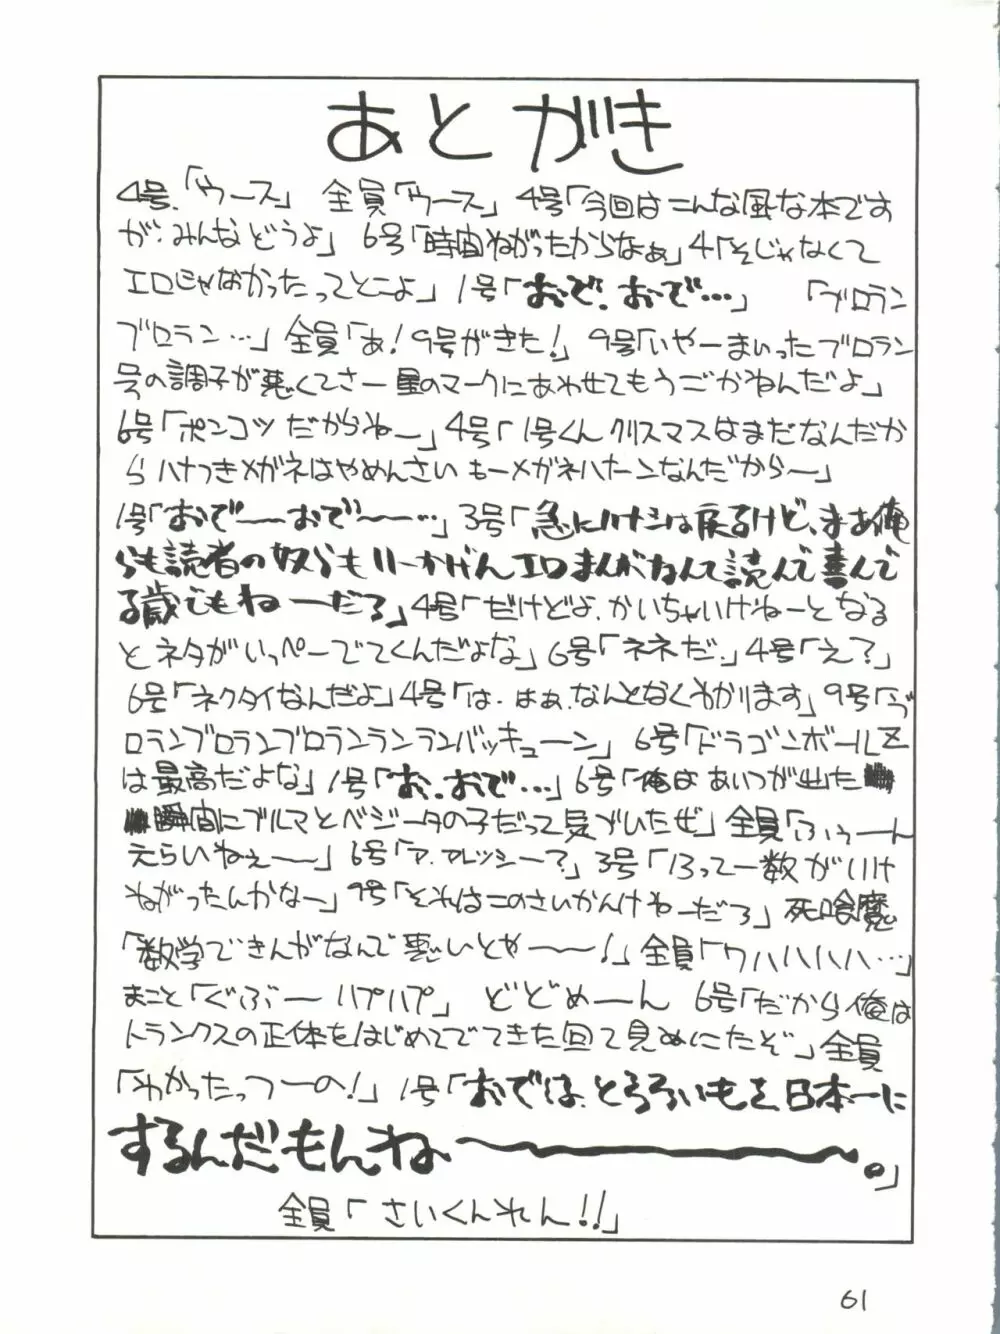 あとがき
4号「ウース」 全員「ウース」 4号「今回はこんな風な本です
が、みんなどうよ」 6号「時間ねがったからなぁ」4「そじゃなくて
エロじゃなかったってとこよ」 1号「おで、おで…」 「ブロラン
ブロラン…」全員「あ!9号がきた!」 9号「いやーまいったブロラン
号の調子が悪くてさー星のマークにあわせてもうごかねんだよ」
6号「ポンコツだからねー」4号「1号くんクリスマスはまだなんだか
らハナつきメガネはやめんさいもーメガネハターンなんだから〜」
1号「おで〜おで〜…」3号「急にハナシは戻るけど、まあ俺
らも読者の奴らもいーかげんエロまんがなんて読んで喜んで
る歳でもねーだろ」4号「だけどよ、かいちゃいけねーとなる
とネタがいっぺーでてくんだよな」6号「ネネだ」4号「え?」
6号「ネクタイなんだよ」4号「は、はぁ、なんとなくわかります」9号「ブ
ロランブロランブロランランランバッキューン」 6号「ドラゴンボールZ
は最高だよな」1号「お、おで…」6号「俺はあいつが出た
瞬間にブルマとベジータの子だって気づいたぜ」全員「ふぅーん
えらいねぇ〜」 6号「ア、アレッシー?」3号「13って一数がいけ
ねがったんかなー」 9号「それはこのさいかんけねーだろ」死喰魔
「数学できんがなんで悪いとや〜!」全員「ワハハハハハ…」
まこと「ぐぶーハプハプ」 どどめーん 6号「だから俺は
トランクスの正体をはじめてでてきた回で見ぬいたぞ」全員
「わかったっつーの!」 1号「おでは、とろろいもを、日本一に
するんだもんね〜。」
全員「さいくんれん!!」
61